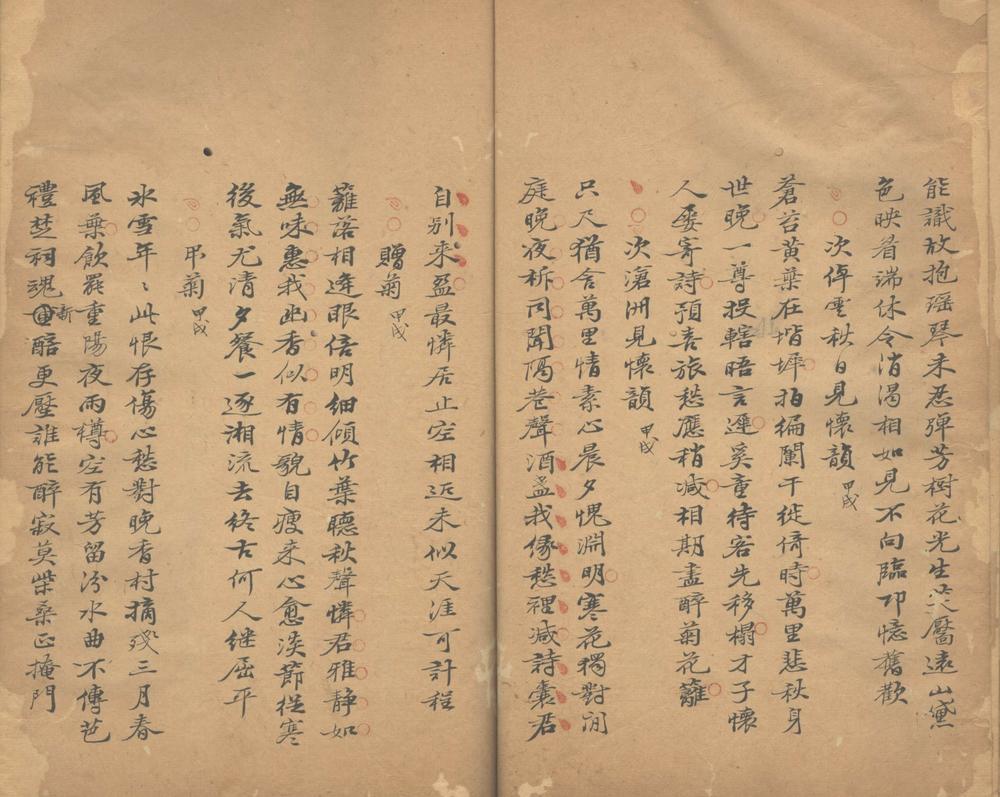 能識放抱瑶琴未忍彈芳樹花光生笑靨遠山黛
色映眉端休令消渴相如見不向臨邛憶舊歡
次倬雲秋日見懷韻 甲戌
蒼苔黃葉在堦墀拍徧闌干徙倚時萬里悲秋身
世晚一尊投轄晤言遲奚童待客先移榻才子懷
人屢寄詩預喜旅愁應稍減相期盡醉菊花籬
次滄洲見懷韻 甲戌
只尺猶含萬里情素心晨夕愧淵明寒花獨對閒
庭晚夜柝同聞隔巷聲酒盞我緣愁裡減詩囊君
自別來盈最憐居止空相近未似天涯可計程
贈菊 甲戌
籬落相逢眼倍明細傾竹葉聽秋聲憐君雅靜如
無味惠我幽香似有情貌自瘦來心愈淡節從寒
後氣尤清夕餐一逐湘流去終古何人继屈平
弔菊 甲戌
氷雪年〻此恨存傷心愁對晚香村摘殘三月春
風葉飲罷重陽夜雨樽空有芳留汾水曲不傳芭
禮楚祠魂新醅更壓誰能醉寂莫柴桑正掩門